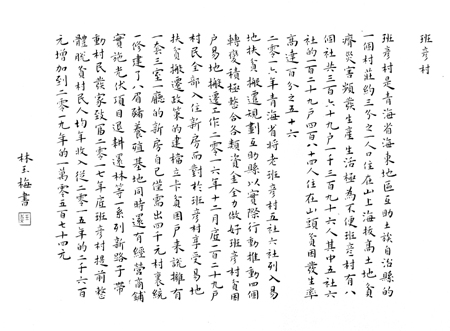 班彦村
班彦村是青海省海東地區互助土族自治縣的
一個村莊約三分之一人口住在山上海拔高土地貧
瘠災害頻發生產生活極為不便班彦村有八
個社共三百六十九戶一千三百九十六人其中五社六
社的一百二十九戶四百八十四人住在山頭貧困發生率
高達百分之五十六
二零一六年青海省將老班彦村五社六社列入易
地扶貧搬遷規劃互助縣以實際行動推動四個
轉變積極整合各類資金全力做好班彦村貧困
戶易地搬遷工作二零一六年十二月底一百二十九戶
村民全部入住新房而對於班彦村享受易地
扶貧搬遷政策的建檔立卡貧困戶來說擁有
一套三室一廳的新房自己僅需出四千元村裏統
一修建了八眉豬養殖基地同時還可經營商鋪
實施光伏項目退耕還林等一系列新路子帶
動村民發家致富二零一七年底班彦村提前整
體脫貧村民人均年收入從二零一五年的二千六百
元增加到二零一九年的一萬零五百七十四元
林玉梅書